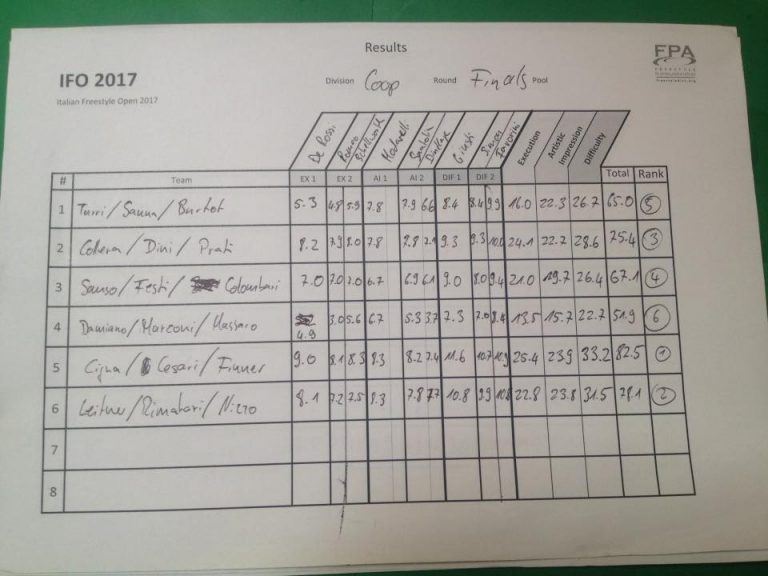 Results
FPA
FREESTYLE
IFO 2017
Division Coop Round Finals Pool
Italian Freestyle Open 2017
De Rossi Giusti Execution Artistic Impression Difficulty
# Team EX 1 EX 2 AI 1 AI 2 DIF 1 DIF 2 Total Rank
1 Turri/Sanna/Burtot 5.3 4.8 5.9 7.8 7.9 6.6 8.4 8.4 9.9 16.0 22.3 26.7 65.0 5
2 / Dini / Prati 8.2 7.9 8.0 7.8 7.8 9.3 9.3 10.0 24.1 22.7 28.6 75.4 3
3 Sanso/Festi/ Colombari 7.0 7.0 7.0 6.7 6.9 6.1 9.0 8.0 9.4 21.0 19.7 26.4 67.1 4
4 Damiano/Marconi/Massaro 4.9 3.0 5.6 6.7 5.3 3.7 7.3 7.0 8.4 13.5 15.7 22.7 51.9 6
5 Cigna/ Cesari/Finner 9.0 8.1 8.3 8.3 8.2 7.4 11.6 10.7 10.9 25.4 23.9 33.2 82.5 1
6 Leitner/Rimatori/Nizzo 8.1 7.2 7.5 8.3 7.8 7.7 10.8 9.9 10.8 22.8 23.8 31.5 78.1 2
7
8